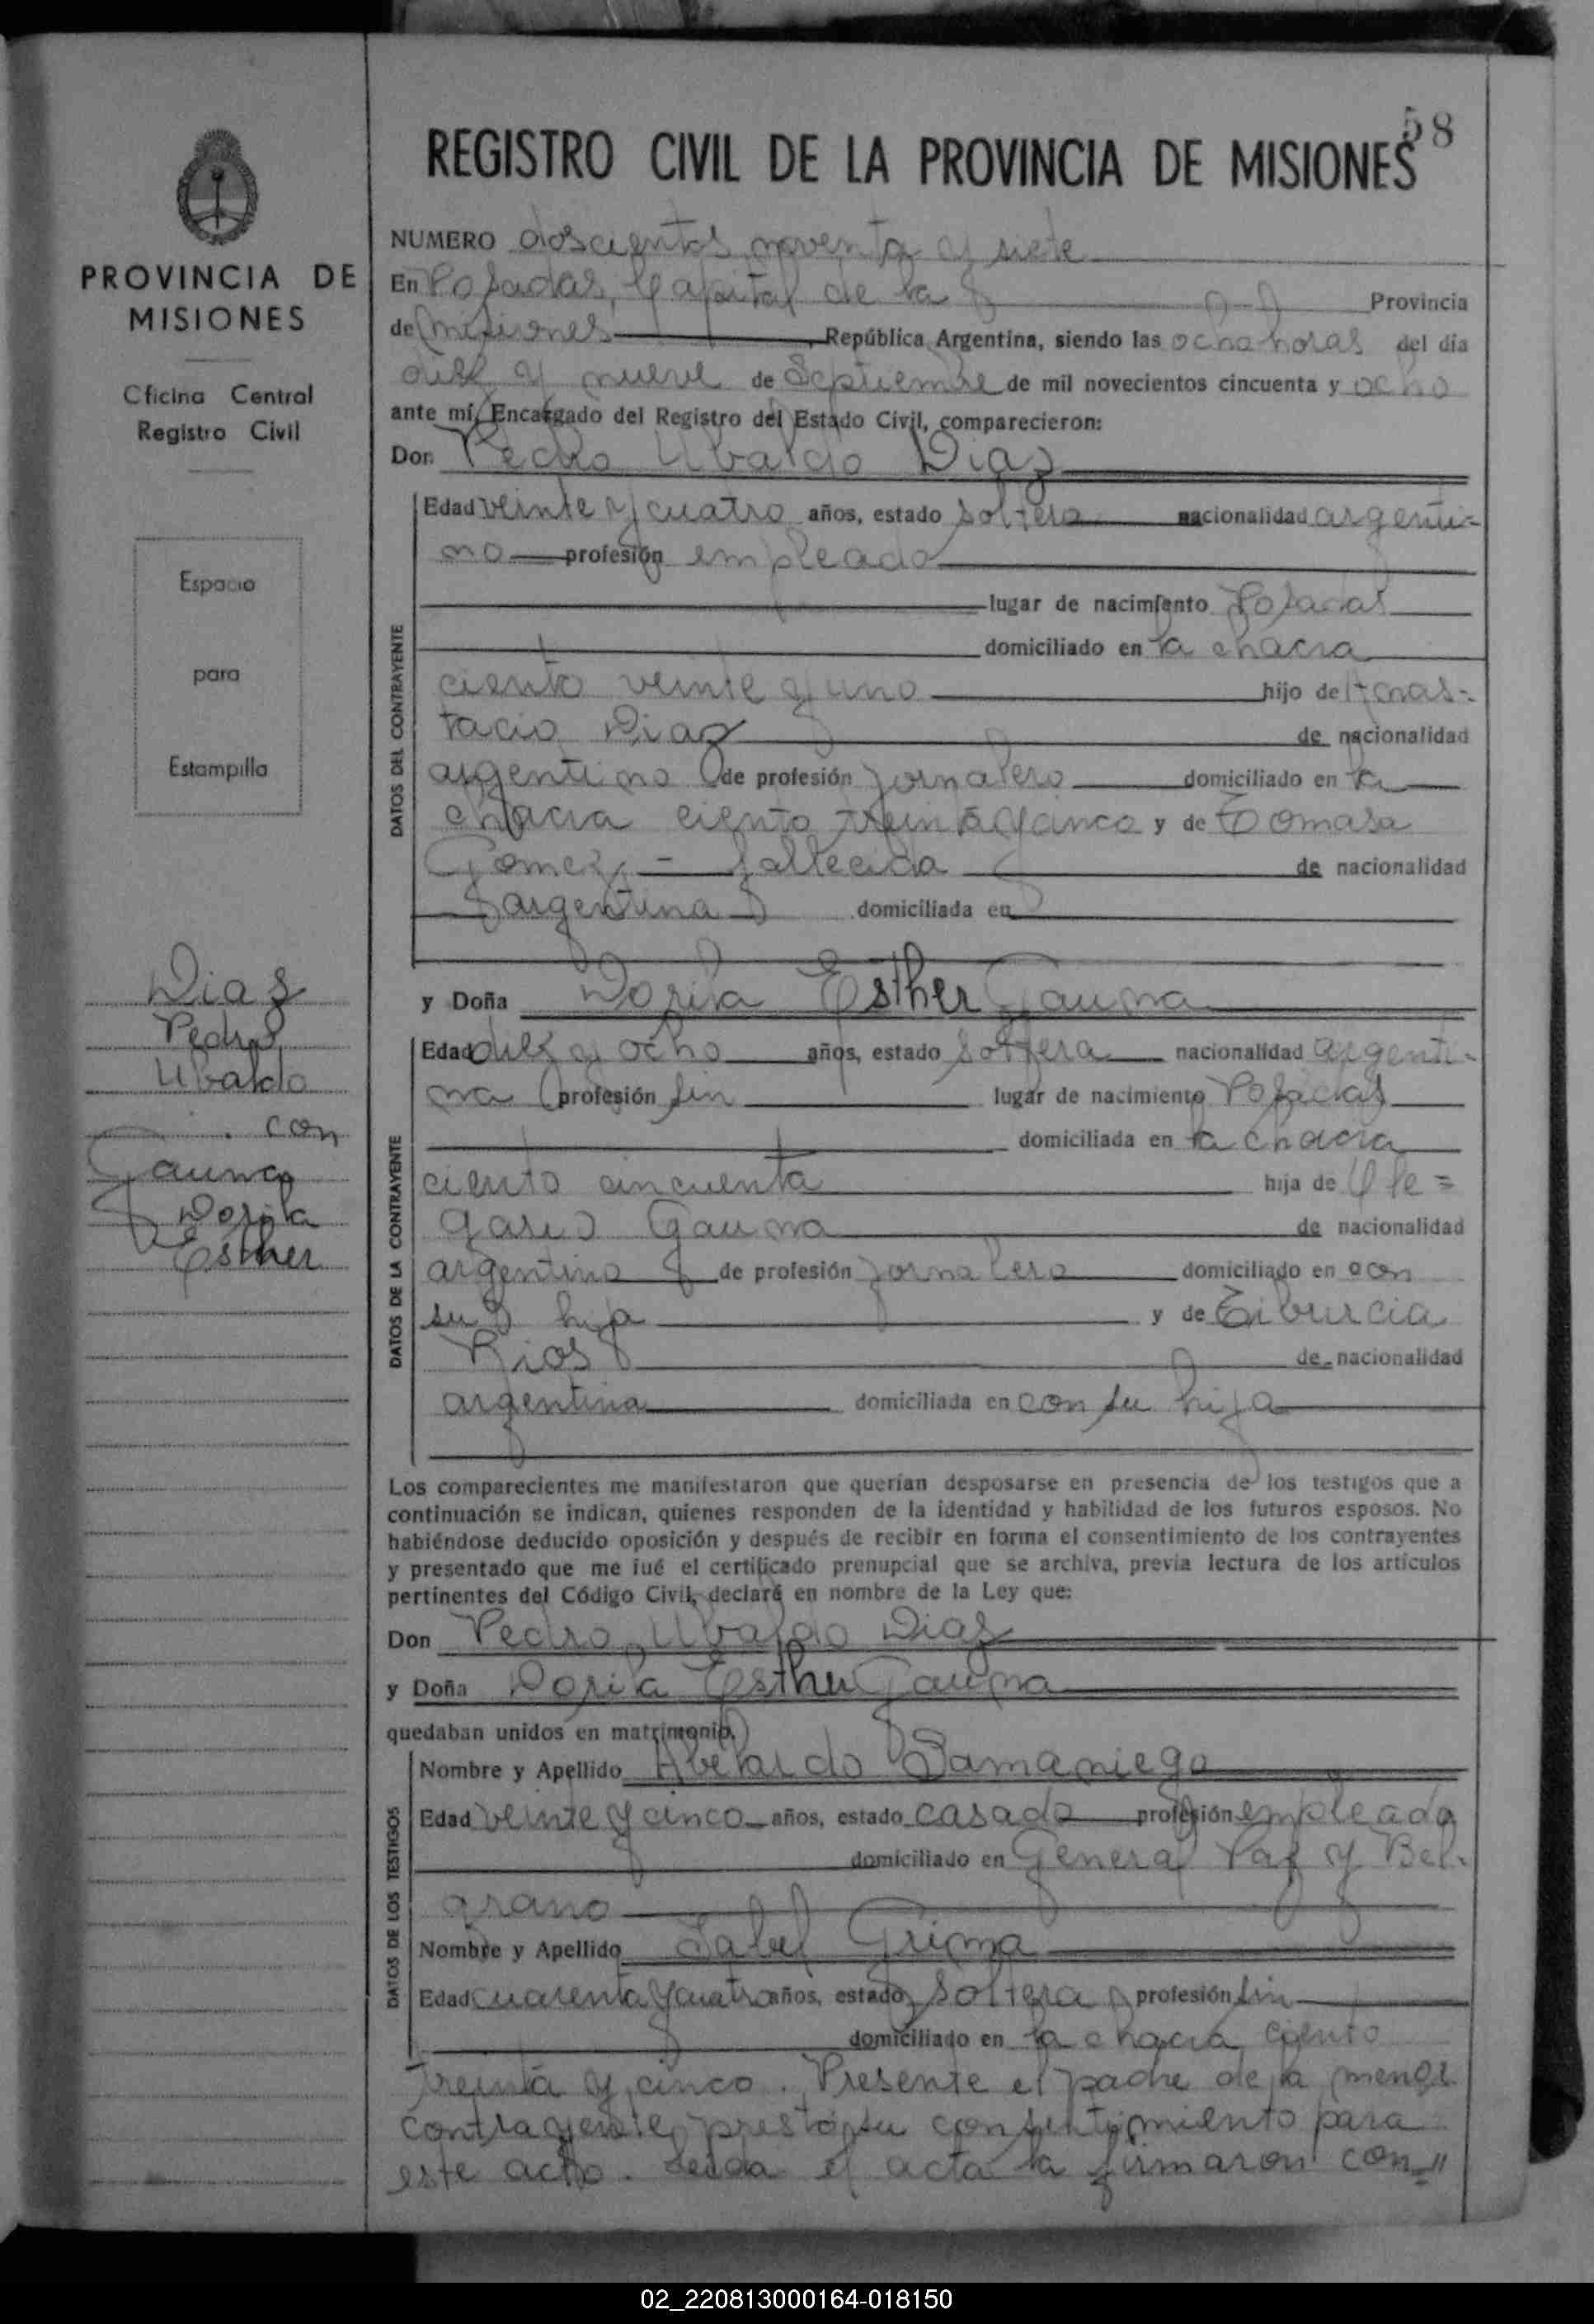 58
REGISTRO CIVIL DE LA PROVINCIA DE MISIONES
PROVINCIA DE
MISIONES
Oficina Central
Registro Civil
Espacio
para
Estampilla
Diaz
Pedro
Ubaldo
con
Gauna
Dorila
Esther
NUMERO doscientos noventa y siete
En Posadas, Capital de la Provincia
de Misiones, República Argentina, siendo las ocho horas del día
diez y nueve de Septiembre de mil novecientos cincuenta y ocho
ante mí, Encargado del Registro del Estado Civil, comparecieron:
Don Pedro Ubaldo Diaz
DATOS DEL CONTRAYENTE
Edad veinte y cuatro años, estado soltero nacionalidad argenti=
no profesión empleado
lugar de nacimiento Posadas
domiciliado en la chacra
ciento veinte y uno hijo de Anas=
tacio Diaz de nacionalidad
argentino de profesión jornalero domiciliado en la
chacra ciento treinta y cinco y de Tomasa
Gomez, - fallecida de nacionalidad
argentina domiciliada en
y Doña Dorila Esther Gauna
DATOS DE LA CONTRAYENTE
Edad diez y ocho años, estado soltera nacionalidad argenti=
na profesión sin lugar de nacimiento Posadas
domiciliada en la chacra
ciento cincuenta hija de
Gauna de nacionalidad
argentino de profesión jornalero domiciliado en con
su hija y de Tiburcia
Rios de nacionalidad
argentina domiciliada en con su hija
Los comparecientes me manifestaron que querían desposarse en presencia de los testigos que a
continuación se indican, quienes responden de la identidad y habilidad de los futuros esposos. No
habiéndose deducido oposición y después de recibir en forma el consentimiento de los contrayentes
y presentado que me fué el certificado prenupcial que se archiva, previa lectura de los artículos
pertinentes del Código Civil, declaré en nombre de la Ley que:
Don Pedro Ubaldo Diaz
y Doña Dorila Esther Gauna
quedaban unidos en matrimonio.
DATOS DE LOS TESTIGOS
Nombre y Apellido Abelardo Samaniego
Edad veinte y cinco años, estado casado profesión empleado
domiciliado en General Paz y Bel-
grano
Nombre y Apellido Isabel Grima
Edad cuarenta y cuatro años, estado soltera profesión sin
domiciliado en la chacra ciento
treinta y cinco. Presente el padre de la menor
contrayente, prestó su consentimiento para
este acto. Leida el acta la firmaron con "
02_220813000164-018150